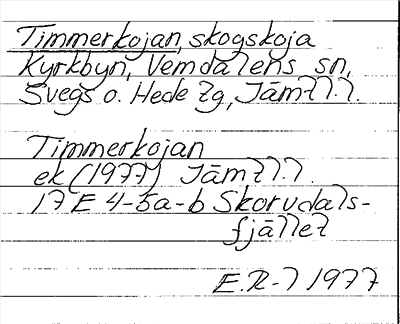 Timmerkojan, skogskoja
Kyrkbyn, Vemdalens sn,
Svegs o. Hede tg, Jämtl.l.
Timmerkojan
ek (1977) Jämtl.l.
17E 4-5a-b Skorvdals-
fjället
E.R-l 1977